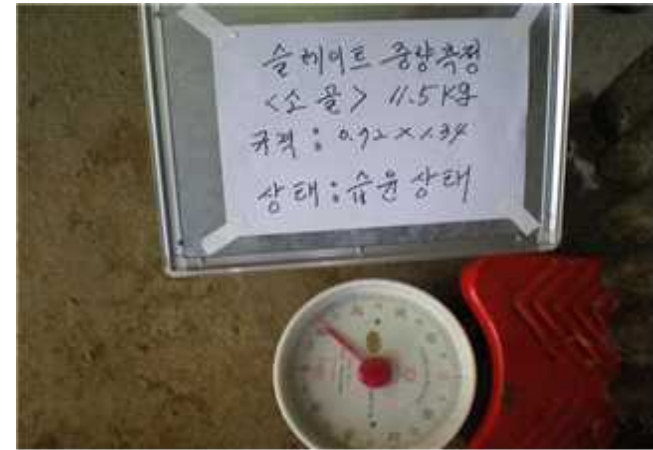 슬레이트 중량측정
<소 골> 11.5 Kg
규격 : 0.92 × 1.34
상태 : 습윤상태